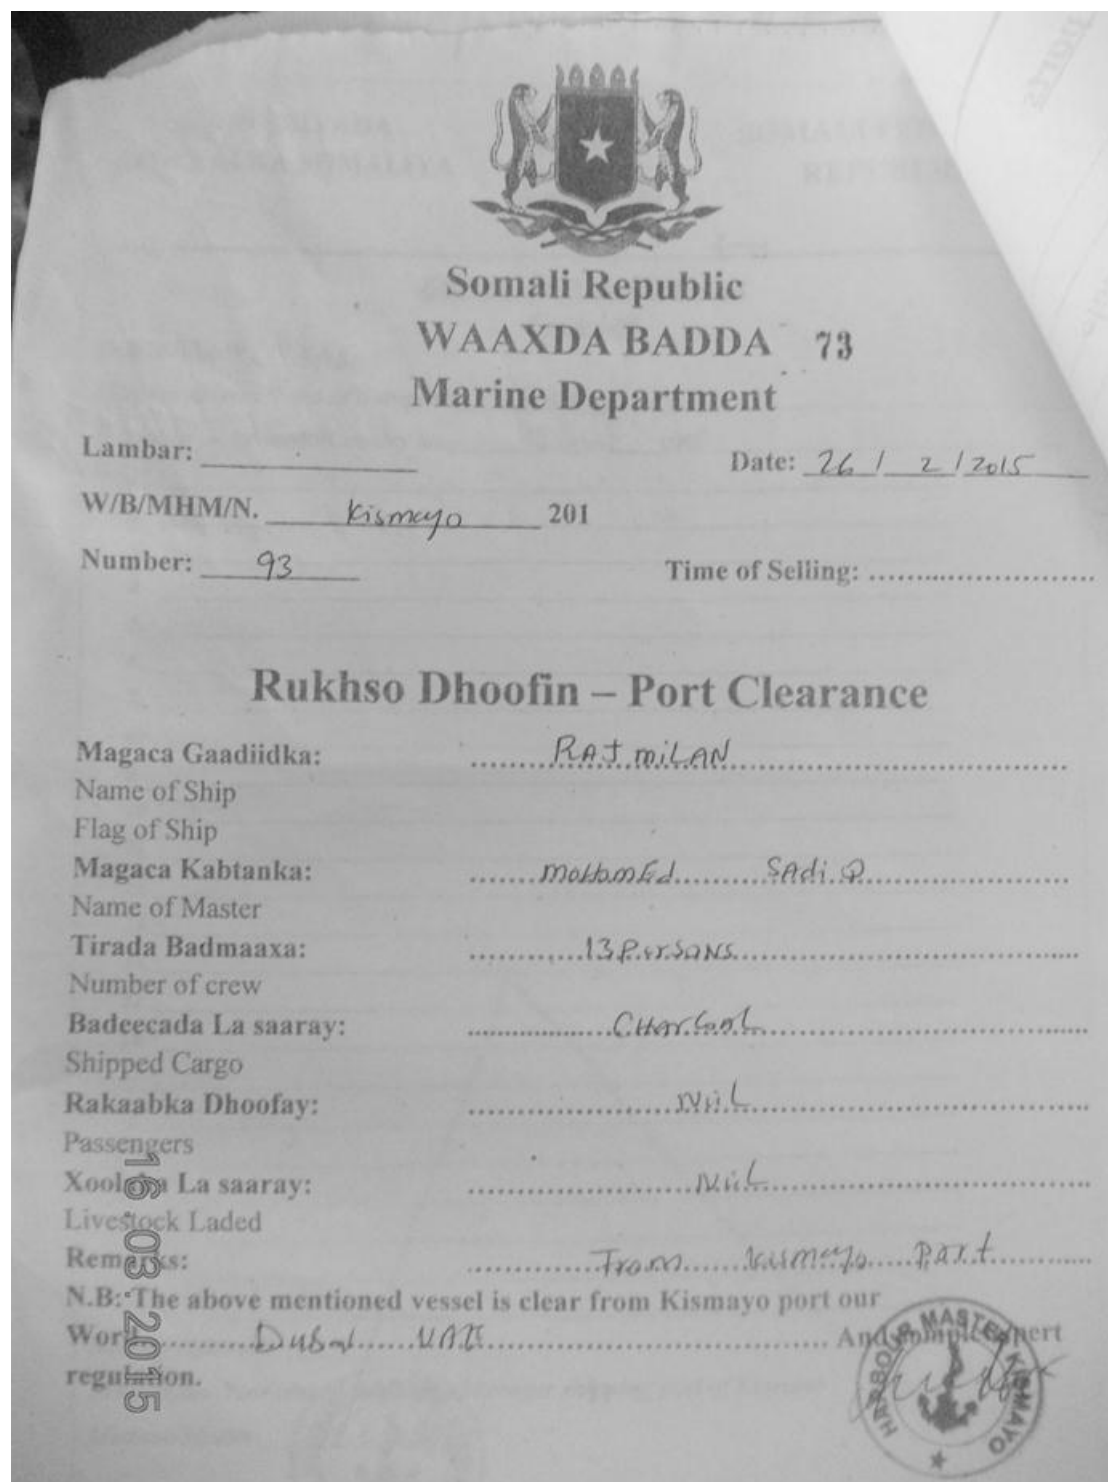 Somali Republic
WAAXDA BADDA 73
Marine Department
Lambar:
Date: 26 / 2 / 2015
W/B/MHM/N. Kismayo 201
Number: 93
Time of Selling:
Rukhso Dhoofin – Port Clearance
Magaca Gaadiidka: RAJ miLAN
Name of Ship
Flag of Ship
Magaca Kabtanka: mohamEd SAdiQ
Name of Master
Tirada Badmaaxa: 13 Persons
Number of crew
Badeecada La saaray: CHarCoaL
Shipped Cargo
Rakaabka Dhoofay: NiiL
Passengers
Xoolaha La saaray: NiiL
Livestock Laded
Remarks: From kismayo Part
N.B: The above mentioned vessel is clear from Kismayo port our
Work Dubai UAE And
regulation.
HARBOUR MASTER KISMAYO
16.03.2015